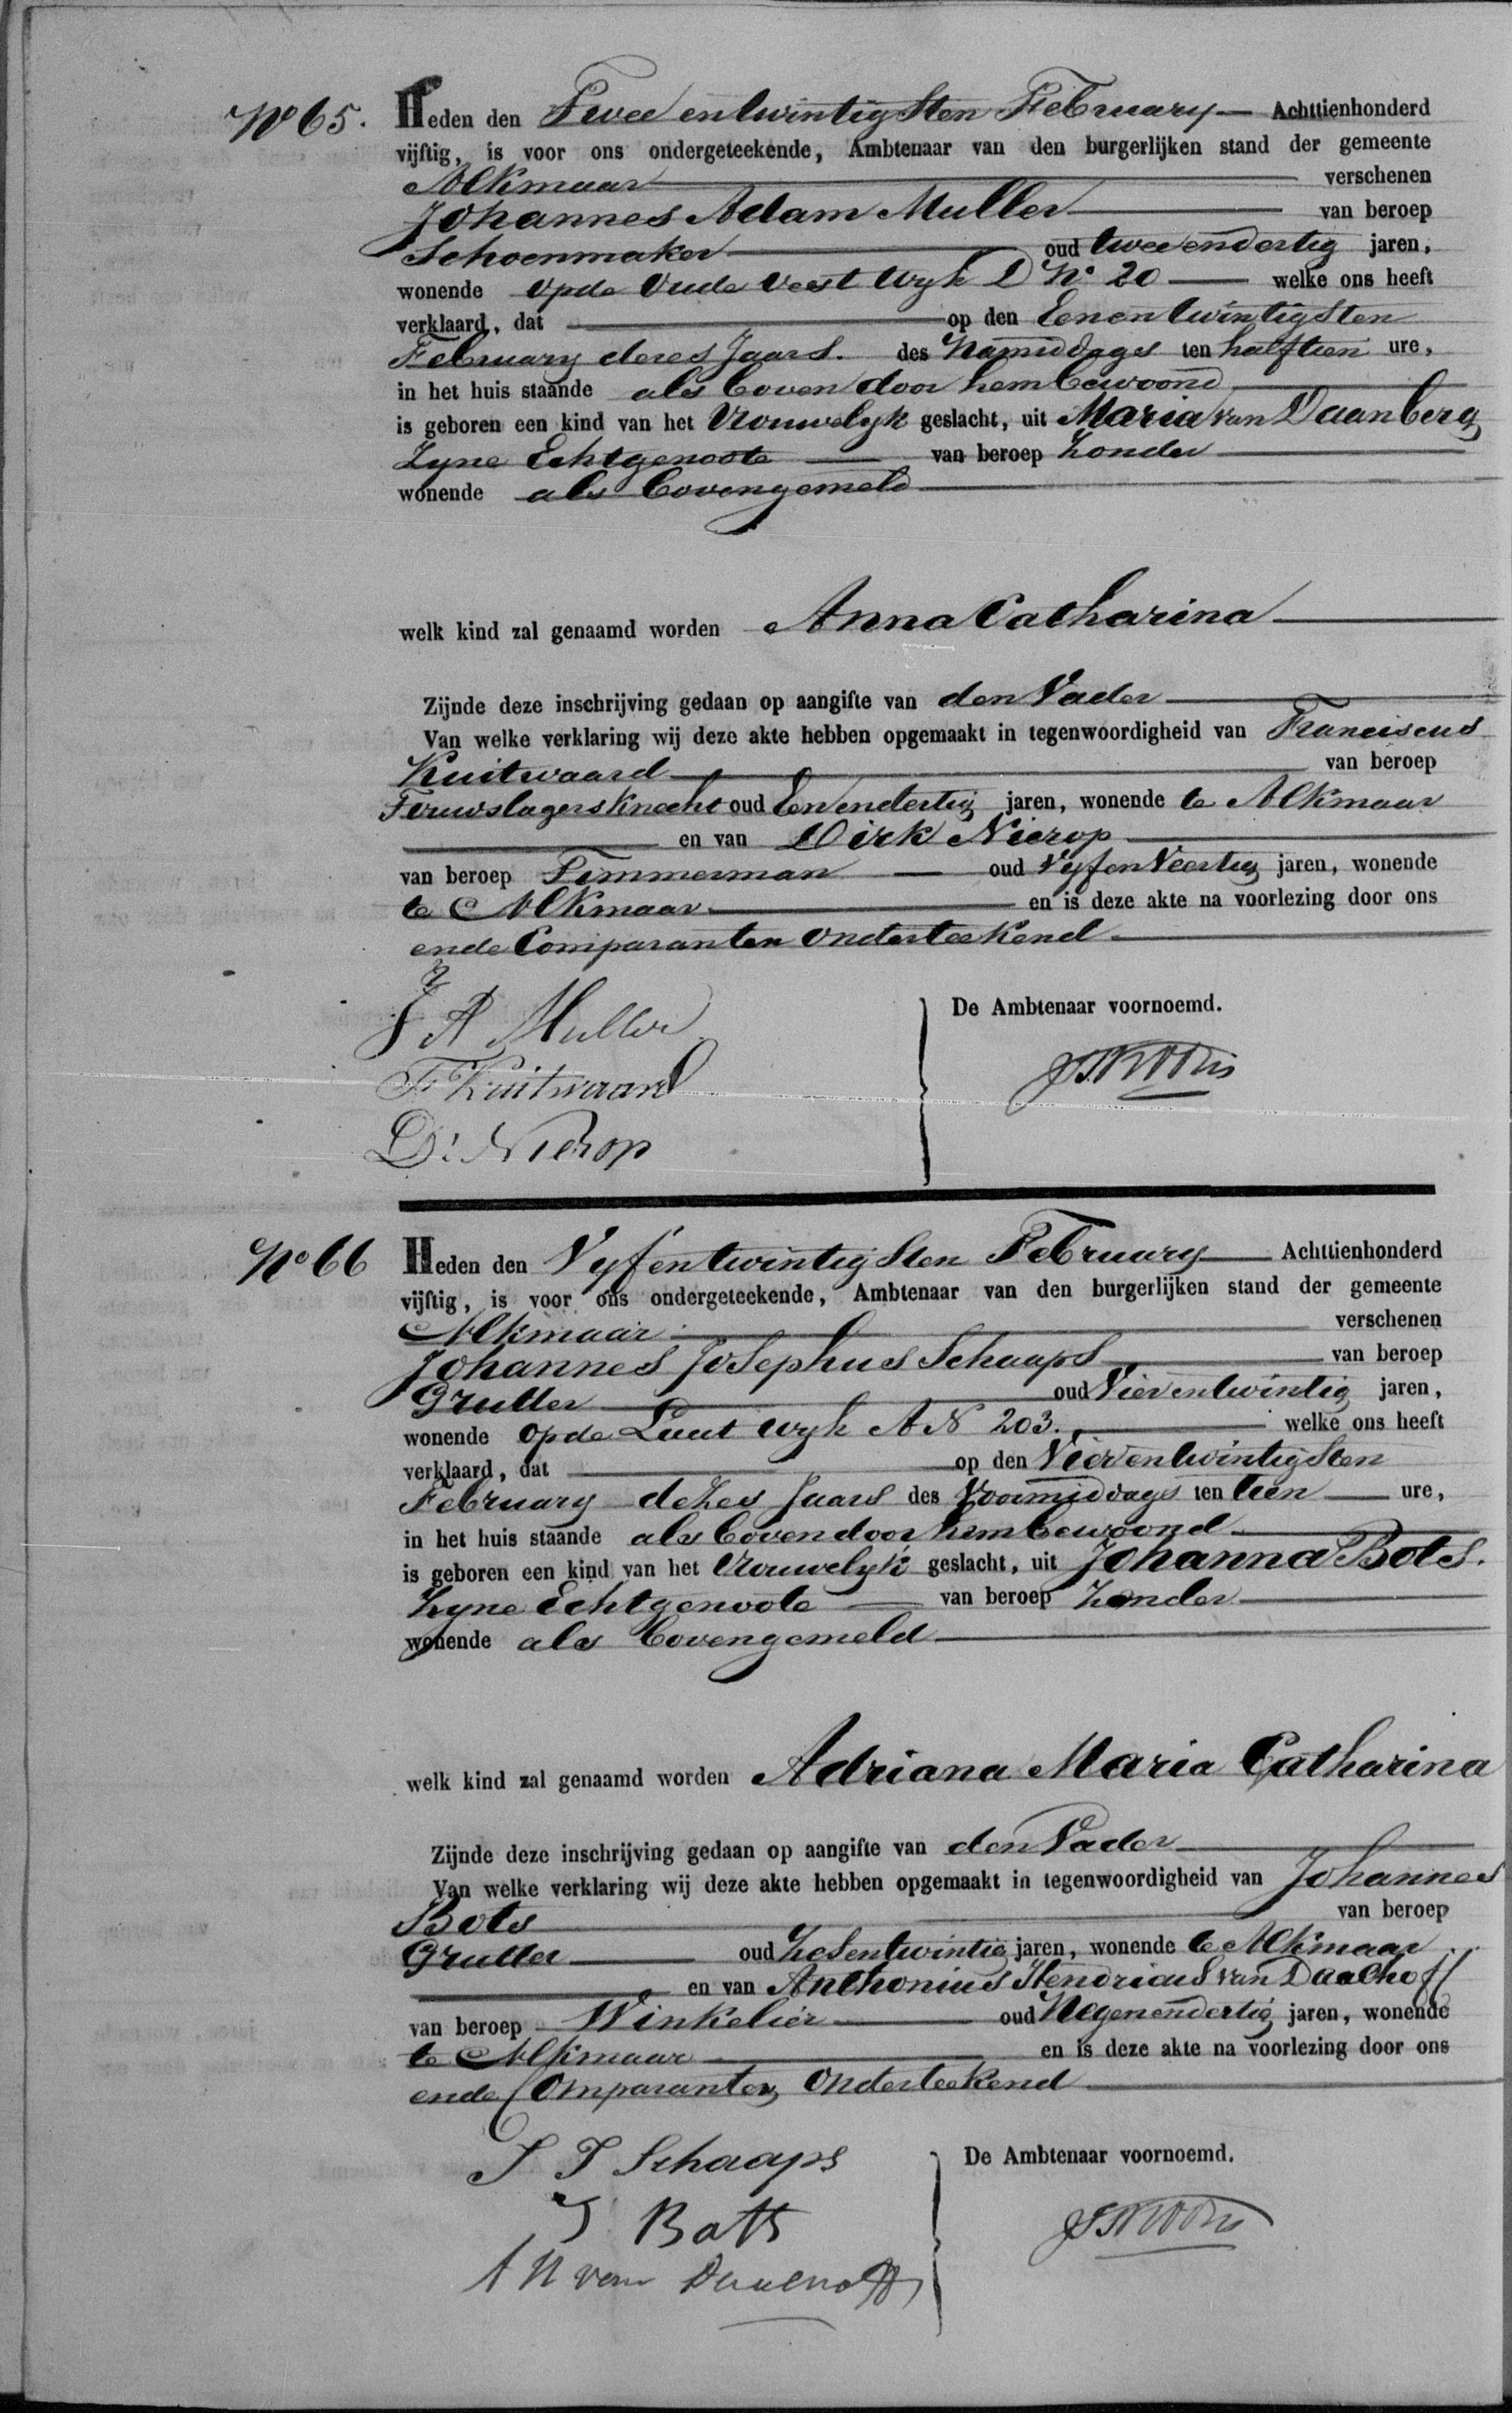 No 65. Heden den Twee entwintigsten February Achttienhonderd
vijftig, is voor ons ondergeteekende, Ambtenaar van den burgerlijken stand der gemeente
Alkmaar verschenen
Johannes Adam Muller van beroep
Schoenmaker oud tweeendertig jaren,
wonende op de Oude Vest Wyk D No 20 welke ons heeft
verklaard, dat op den Eenentwintigsten
February dezes Jaars. des Namiddags ten halftien ure,
in het huis staande als boven door hem bewoond
is geboren een kind van het Vrouwelyk geslacht, uit Maria van Daanberg
Zyne Echtgenoote van beroep Zonder
wonende als bovengemeld
welk kind zal genaamd worden Anna Catharina
Zijnde deze inschrijving gedaan op aangifte van den Vader
Van welke verklaring wij deze akte hebben opgemaakt in tegenwoordigheid van Franciscus
Kuitwaard van beroep
Touwslagersknecht oud Eenendertig jaren, wonende te Alkmaar
en van Dirk Nierop
van beroep Timmerman oud Vyfenveertig jaren, wonende
te Alkmaar en is deze akte na voorlezing door ons
ende Comparanten onderteekend
J A Muller
F Kuitwaard
D: Nierop
De Ambtenaar voornoemd.
No 66 Heden den Vyfentwintigsten February Achttienhonderd
vijftig, is voor ons ondergeteekende, Ambtenaar van den burgerlijken stand der gemeente
Alkmaar verschenen
Johannes Josephus Schaaps van beroep
Grutter oud Vierentwintig jaren,
wonende op de Laat wyk A N 203. welke ons heeft
verklaard, dat op den Vierentwintigsten
February dezes Jaars des Voormiddags ten tien ure,
in het huis staande als boven door hem bewoond
is geboren een kind van het Vrouwelyk geslacht, uit Johanna Bots.
Zyne Echtgenoote van beroep Zonder
wonende als bovengemeld
welk kind zal genaamd worden Adriana Maria Catharina
Zijnde deze inschrijving gedaan op aangifte van den Vader
Van welke verklaring wij deze akte hebben opgemaakt in tegenwoordigheid van Johannes
Bots van beroep
Grutter oud Zesentwintig jaren, wonende te Alkmaar
en van Anthonius Hendricus van Daalhoff
van beroep Winkelier oud Negenendertig jaren, wonende
te Alkmaar en is deze akte na voorlezing door ons
ende Comparanten onderteekend
J J Schaaps
J Bots
A H van Daalhoff
De Ambtenaar voornoemd.